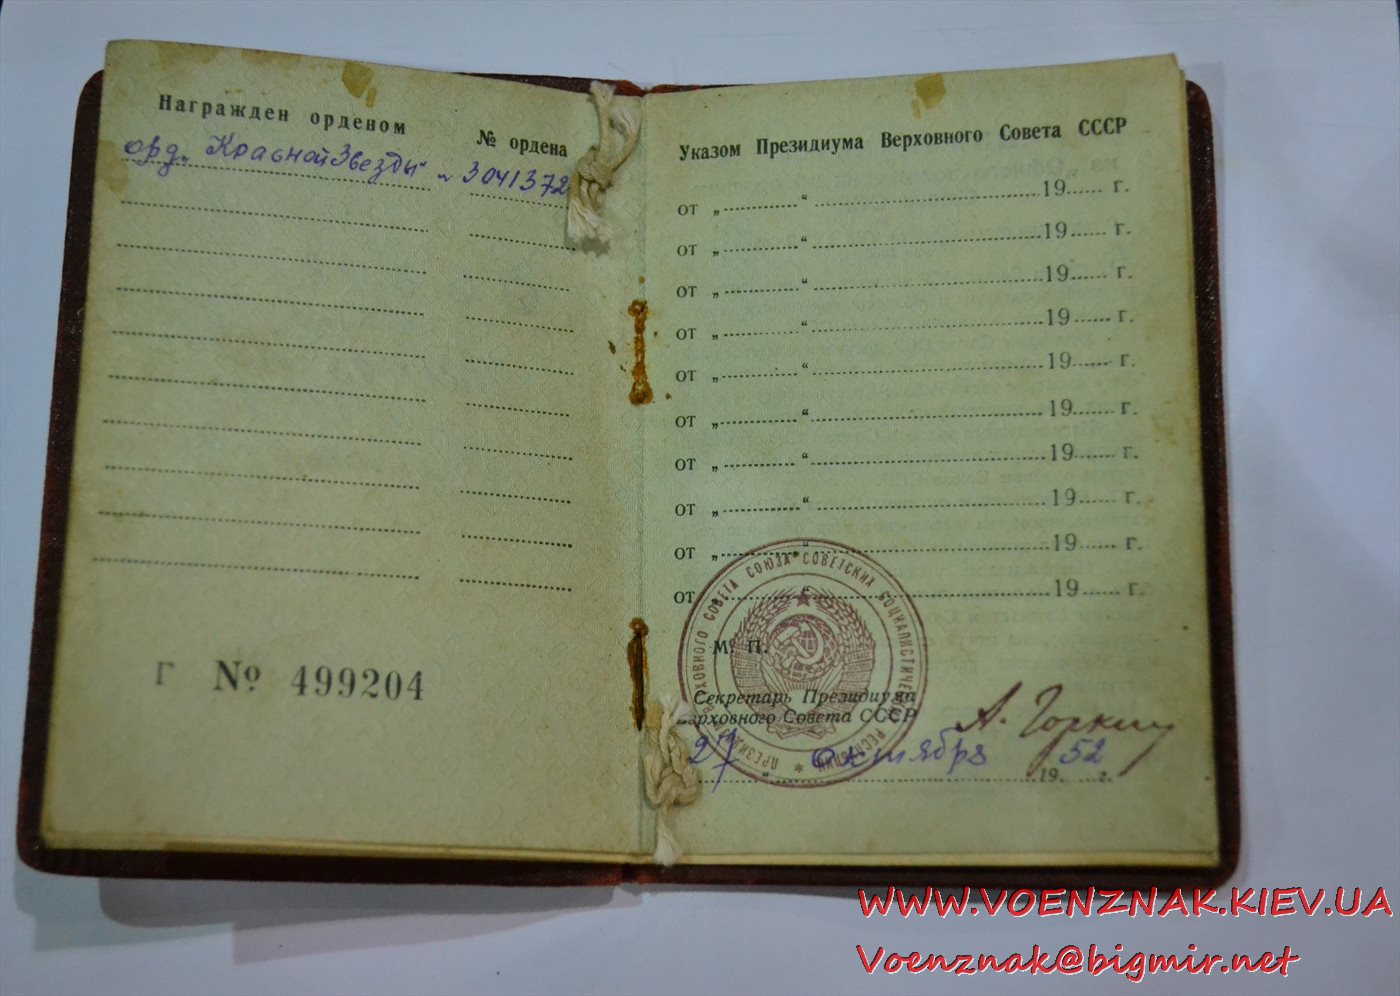 Награжден орденом
№ ордена
орд. „Красной Звезды“ № 3041372
Г № 499204
Указом Президиума Верховного Совета СССР
от „ “ 19 г.
от „ “ 19 г.
от „ “ 19 г.
от „ “ 19 г.
от „ “ 19 г.
от „ “ 19 г.
от „ “ 19 г.
от „ “ 19 г.
от „ “ 19 г.
от „ “ 19 г.
М. П.
ПРЕЗИДИУМ ВЕРХОВНОГО СОВЕТА СОЮЗА СОВЕТСКИХ СОЦИАЛИСТИЧЕСКИХ РЕСПУБЛИК
Секретарь Президиума
Верховного Совета СССР
А. Горкин
27 октября 1952 г.
WWW.VOENZNAK.KIEV.UA
Voenznak@bigmir.net